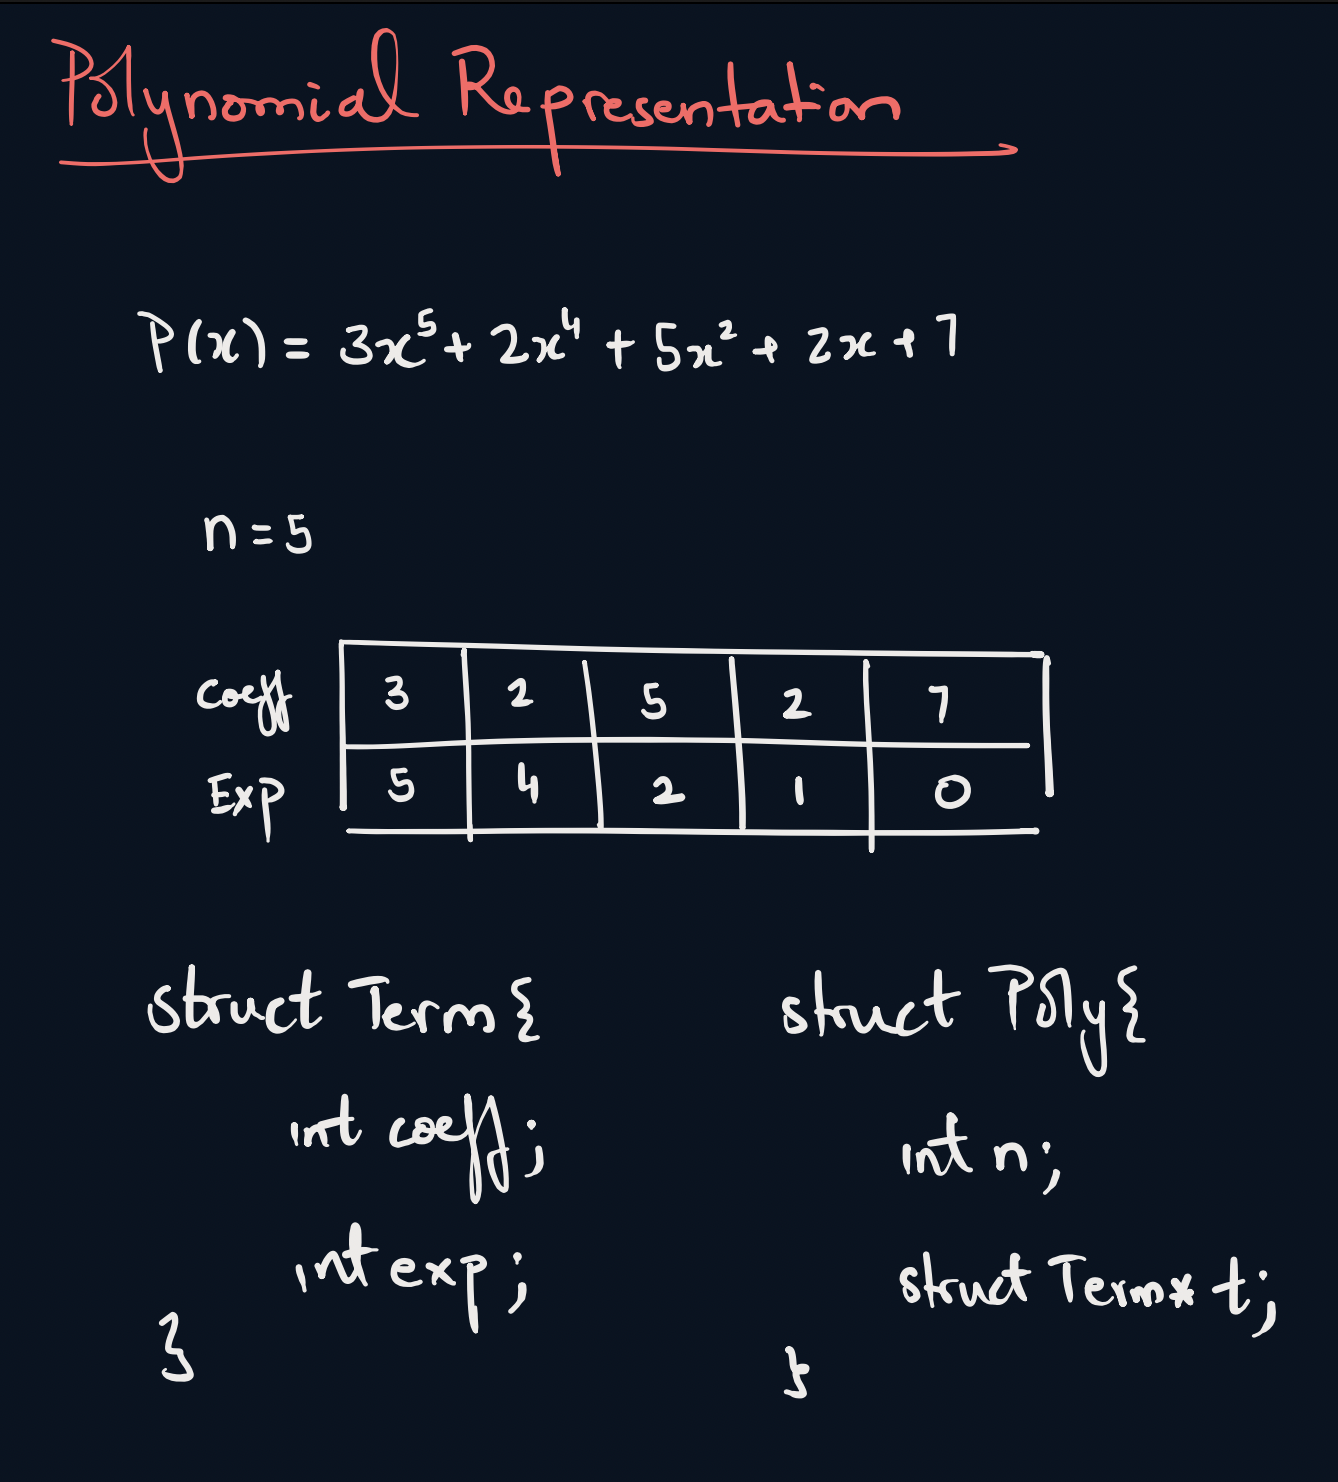 Polynomial Representation
P(x) = 3x⁵ + 2x⁴ + 5x² + 2x + 7
n = 5
Coeff 3 2 5 2 7
Exp 5 4 2 1 0
struct Term {
int coeff;
int exp;
}
struct Poly {
int n;
struct Term* t;
}